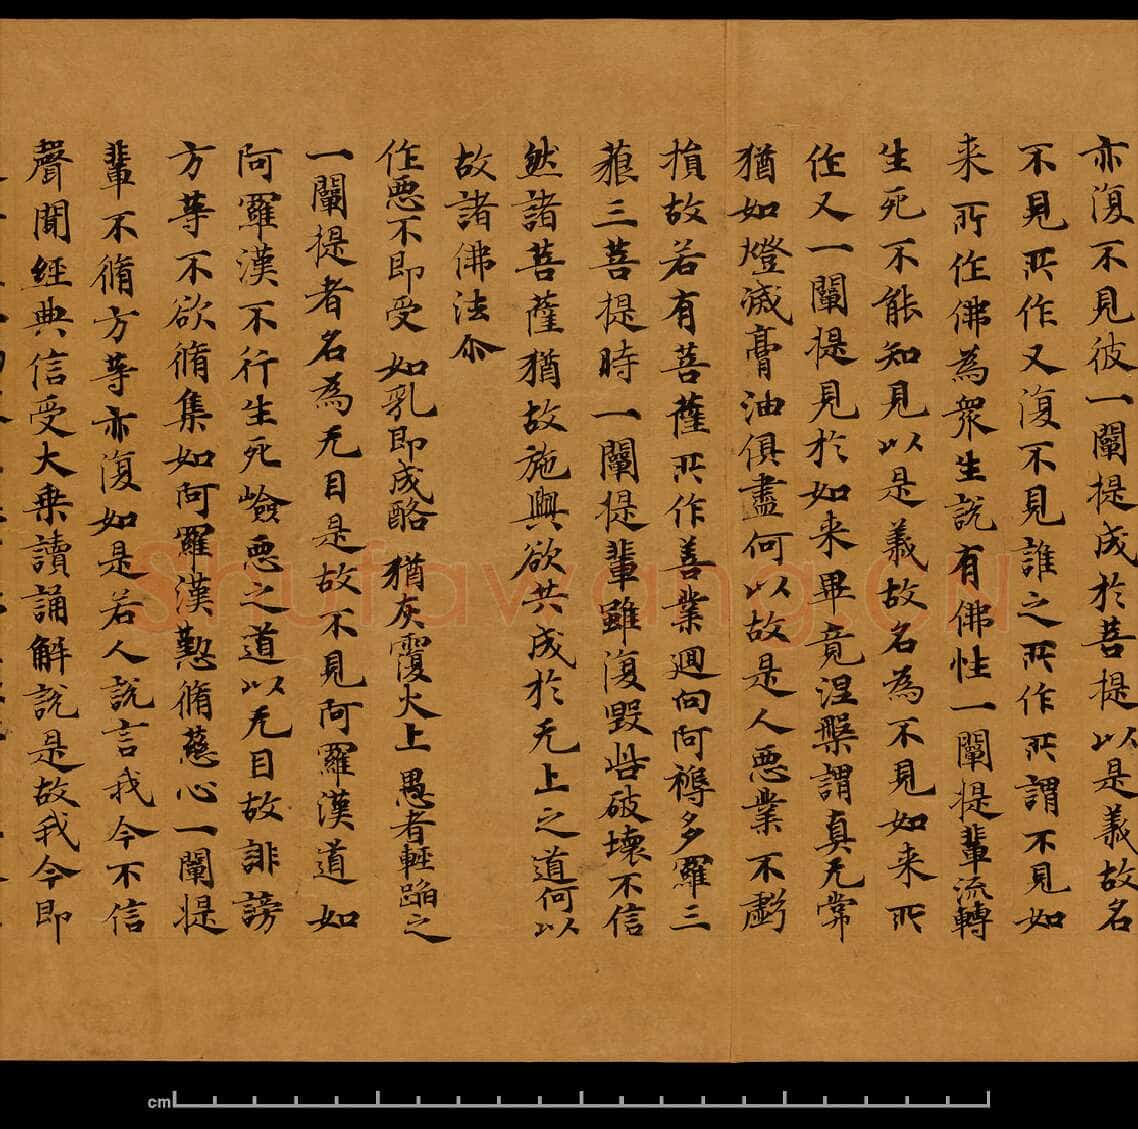 亦復不見彼一闡提成於菩提以是義故名
不見所作又復不見誰之所作所謂不見如
来所作佛為衆生説有佛性一闡提輩流轉
生死不能知見以是義故名為不見如来所
作又一闡提見於如来畢竟涅槃謂真无常
猶如燈滅膏油俱盡何以故是人惡業不虧
損故若有菩薩所作善業迴向阿耨多羅三
藐三菩提時一闡提輩雖復毀呰破壞不信
然諸菩薩猶故施與欲共成於无上之道何以
故諸佛法尒
作惡不即受 如乳即成酪 猶灰覆火上 愚者輕蹈之
一闡提者名為无目是故不見阿羅漢道如
阿羅漢不行生死嶮惡之道以无目故誹謗
方等不欲脩集如阿羅漢懃脩慈心一闡提
輩不脩方等亦復如是若人説言我今不信
聲聞經典信受大乗讀誦解説是故我今即
Shufawang.CN
cm